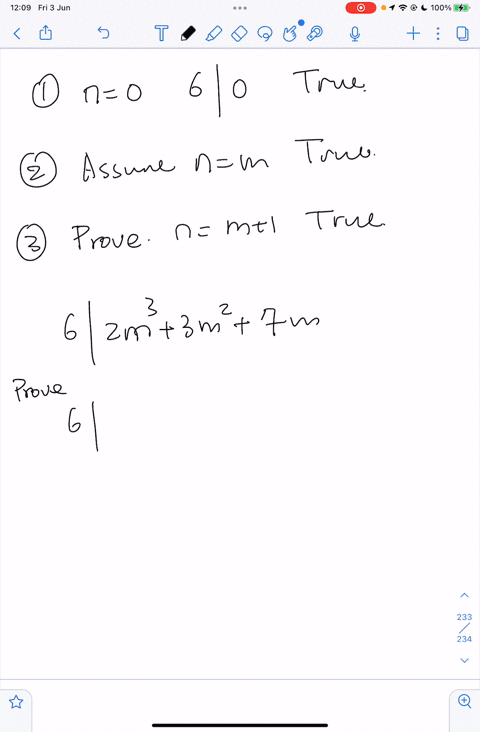 12:09 Fri 3 Jun 100%
① n=0 6|0 True.
② Assume n=m True.
③ Prove. n= m+1 True.
6|2m³+3m²+7m
Prove
6|
233
234